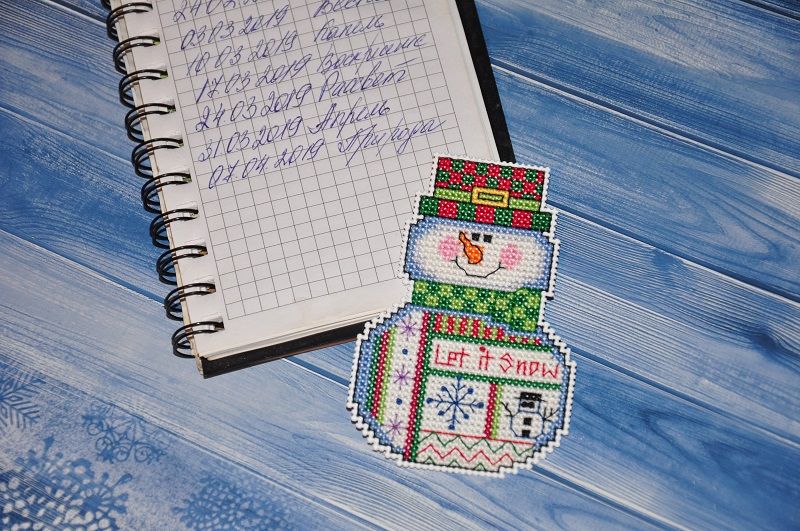 24.02.2019
03.03.2019 Капель
10.03.2019
17.03.2019 Рассвет
24.03.2019 Апрель
31.03.2019 Природа
07.04.2019
Let it Snow